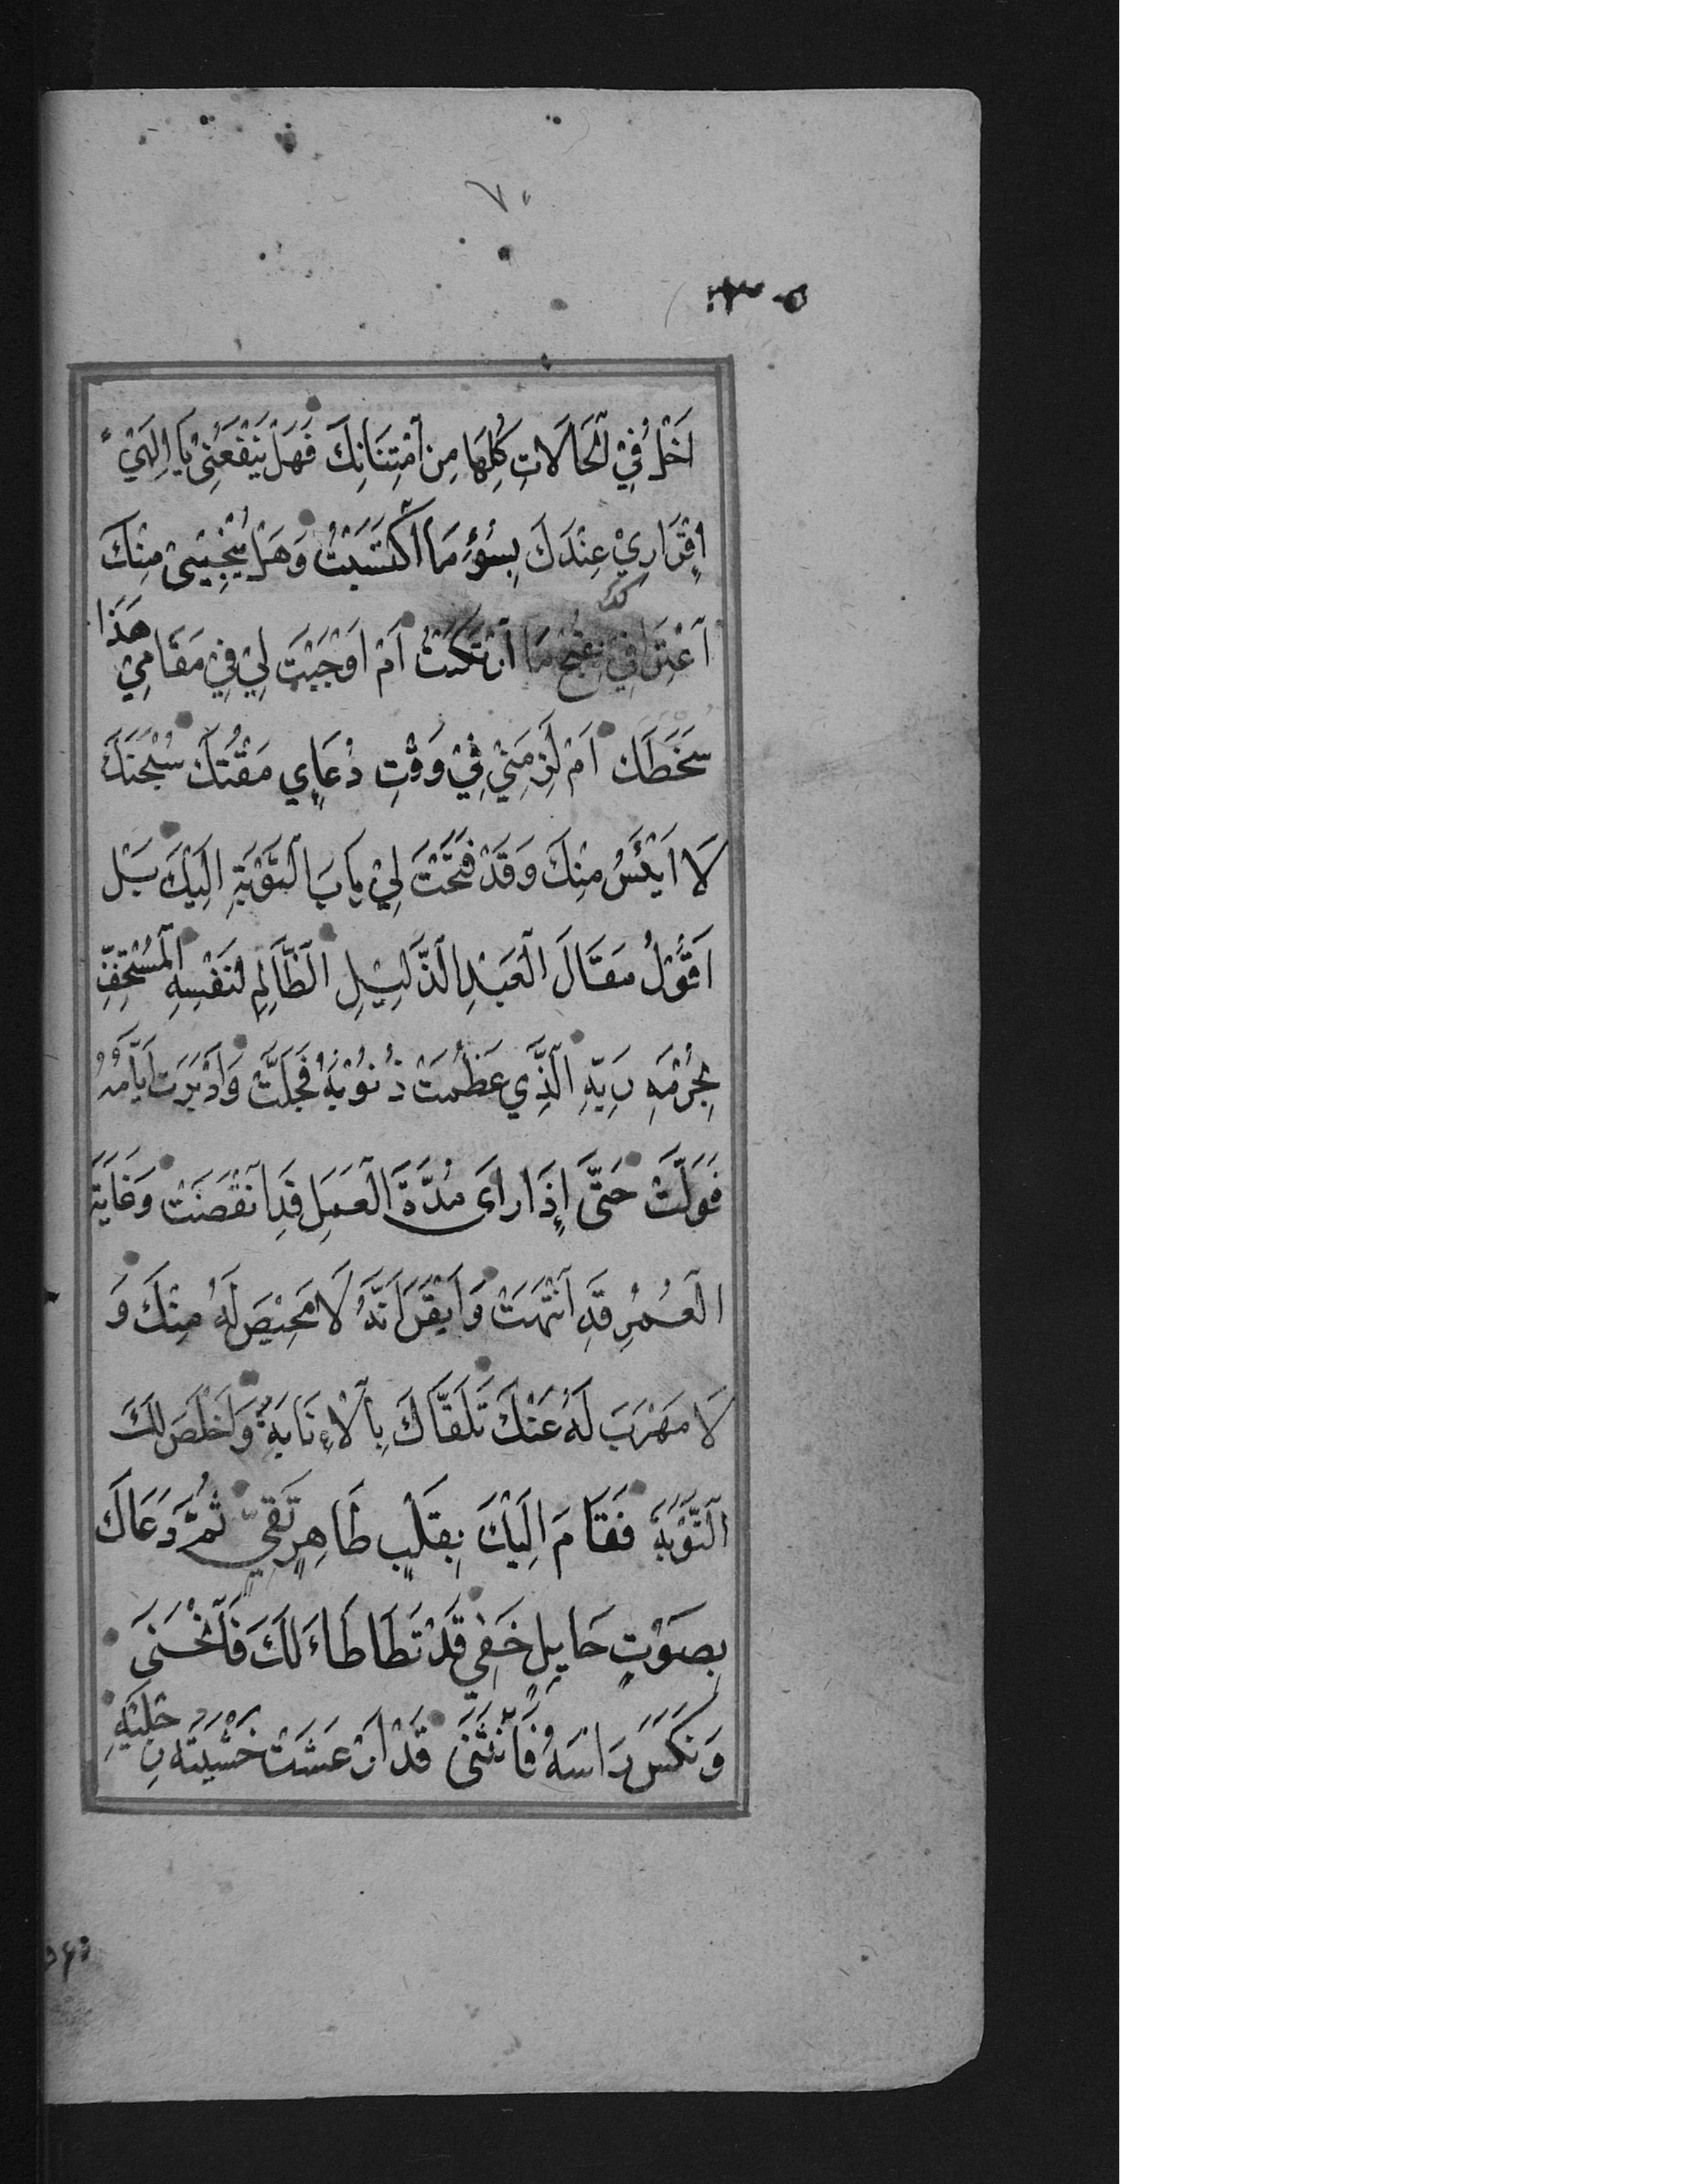 ٧٠
اَخْلُ فِيْ الْحَالَاتِ كُلِهَا مِنِ اَمْتِنَانِكَ فَهَلْ يَنْفَعُنِىْ يَا اِلَهِيْ
اِقْرَارِيْ عِنْدَكَ بِسُوْءِ مَا اَكْتَسَبْتُ وَهَلْ يُنْجِيْنِىْ مِنْكَ
اَعْتِرَافِيْ بِقُبْحِ مَا اَرْتَكَبْتُ اَمْ اَوْجَبْتَ لِيْ فِيْ مَقَامِيْ هَذَا
سَخَطَكَ اَمْ لَزِمَنِيْ فِيْ وَقْتِ دُعَاءِي مَقْتُكَ سُبْحَنَكَ
لَا اَيْئَسُ مِنْكَ وَقَدْ فَتَحْتَ لِيْ بَابَ التَّوْبَةِ اِلَيْكَ بَلْ
اَقُوْلُ مَقَالَ الْعَبْدِ الذَّلِيْلِ الْظَّالِمِ لنَفْسِهِ الْمُسْتَخِفِّ
بِحُرْمَةِ رَبِّهِ الَّذِي عَظُمَتْ ذُنُوْبُهُ فَجَلَّتْ وَاَدْبَرَتْ اَيَّامُهُ
فَوَلَّتْ حَتَّى اِذَا رَاَى مُدَّةَ الْعَمَلِ قَدِ اَنْقَضَتْ وَغَايَةَ
الْعُمُرِ قَدِ اَنْتَهَتْ وَاَيْقَنَ اَنَّهُ لَا مَحِيْصَ لَهُ مِنْكَ وَ
لَا مَهْرَبَ لَهُ عَنْكَ تَلَقَّاكَ بِالْاِنَابَةِ وَاَخْلَصَ لَكَ
الْتَّوْبَةَ فَقَامَ اِلَيْكَ بِقَلْبٍ طَاهِرٍ نَقِيٍّ ثُمَّ دَعَاكَ
بِصَوْتٍ حَايِلٍ خَفِيٍ قَدْ تَطَاطَاءَ لَكَ فَانْحَنَى
وَنَكَّسَ رَاْسَهُ فَانْثَنَى قَدْ اَرْعَشَتْ خَشْيَتُهُ رِجْلَيْهِ